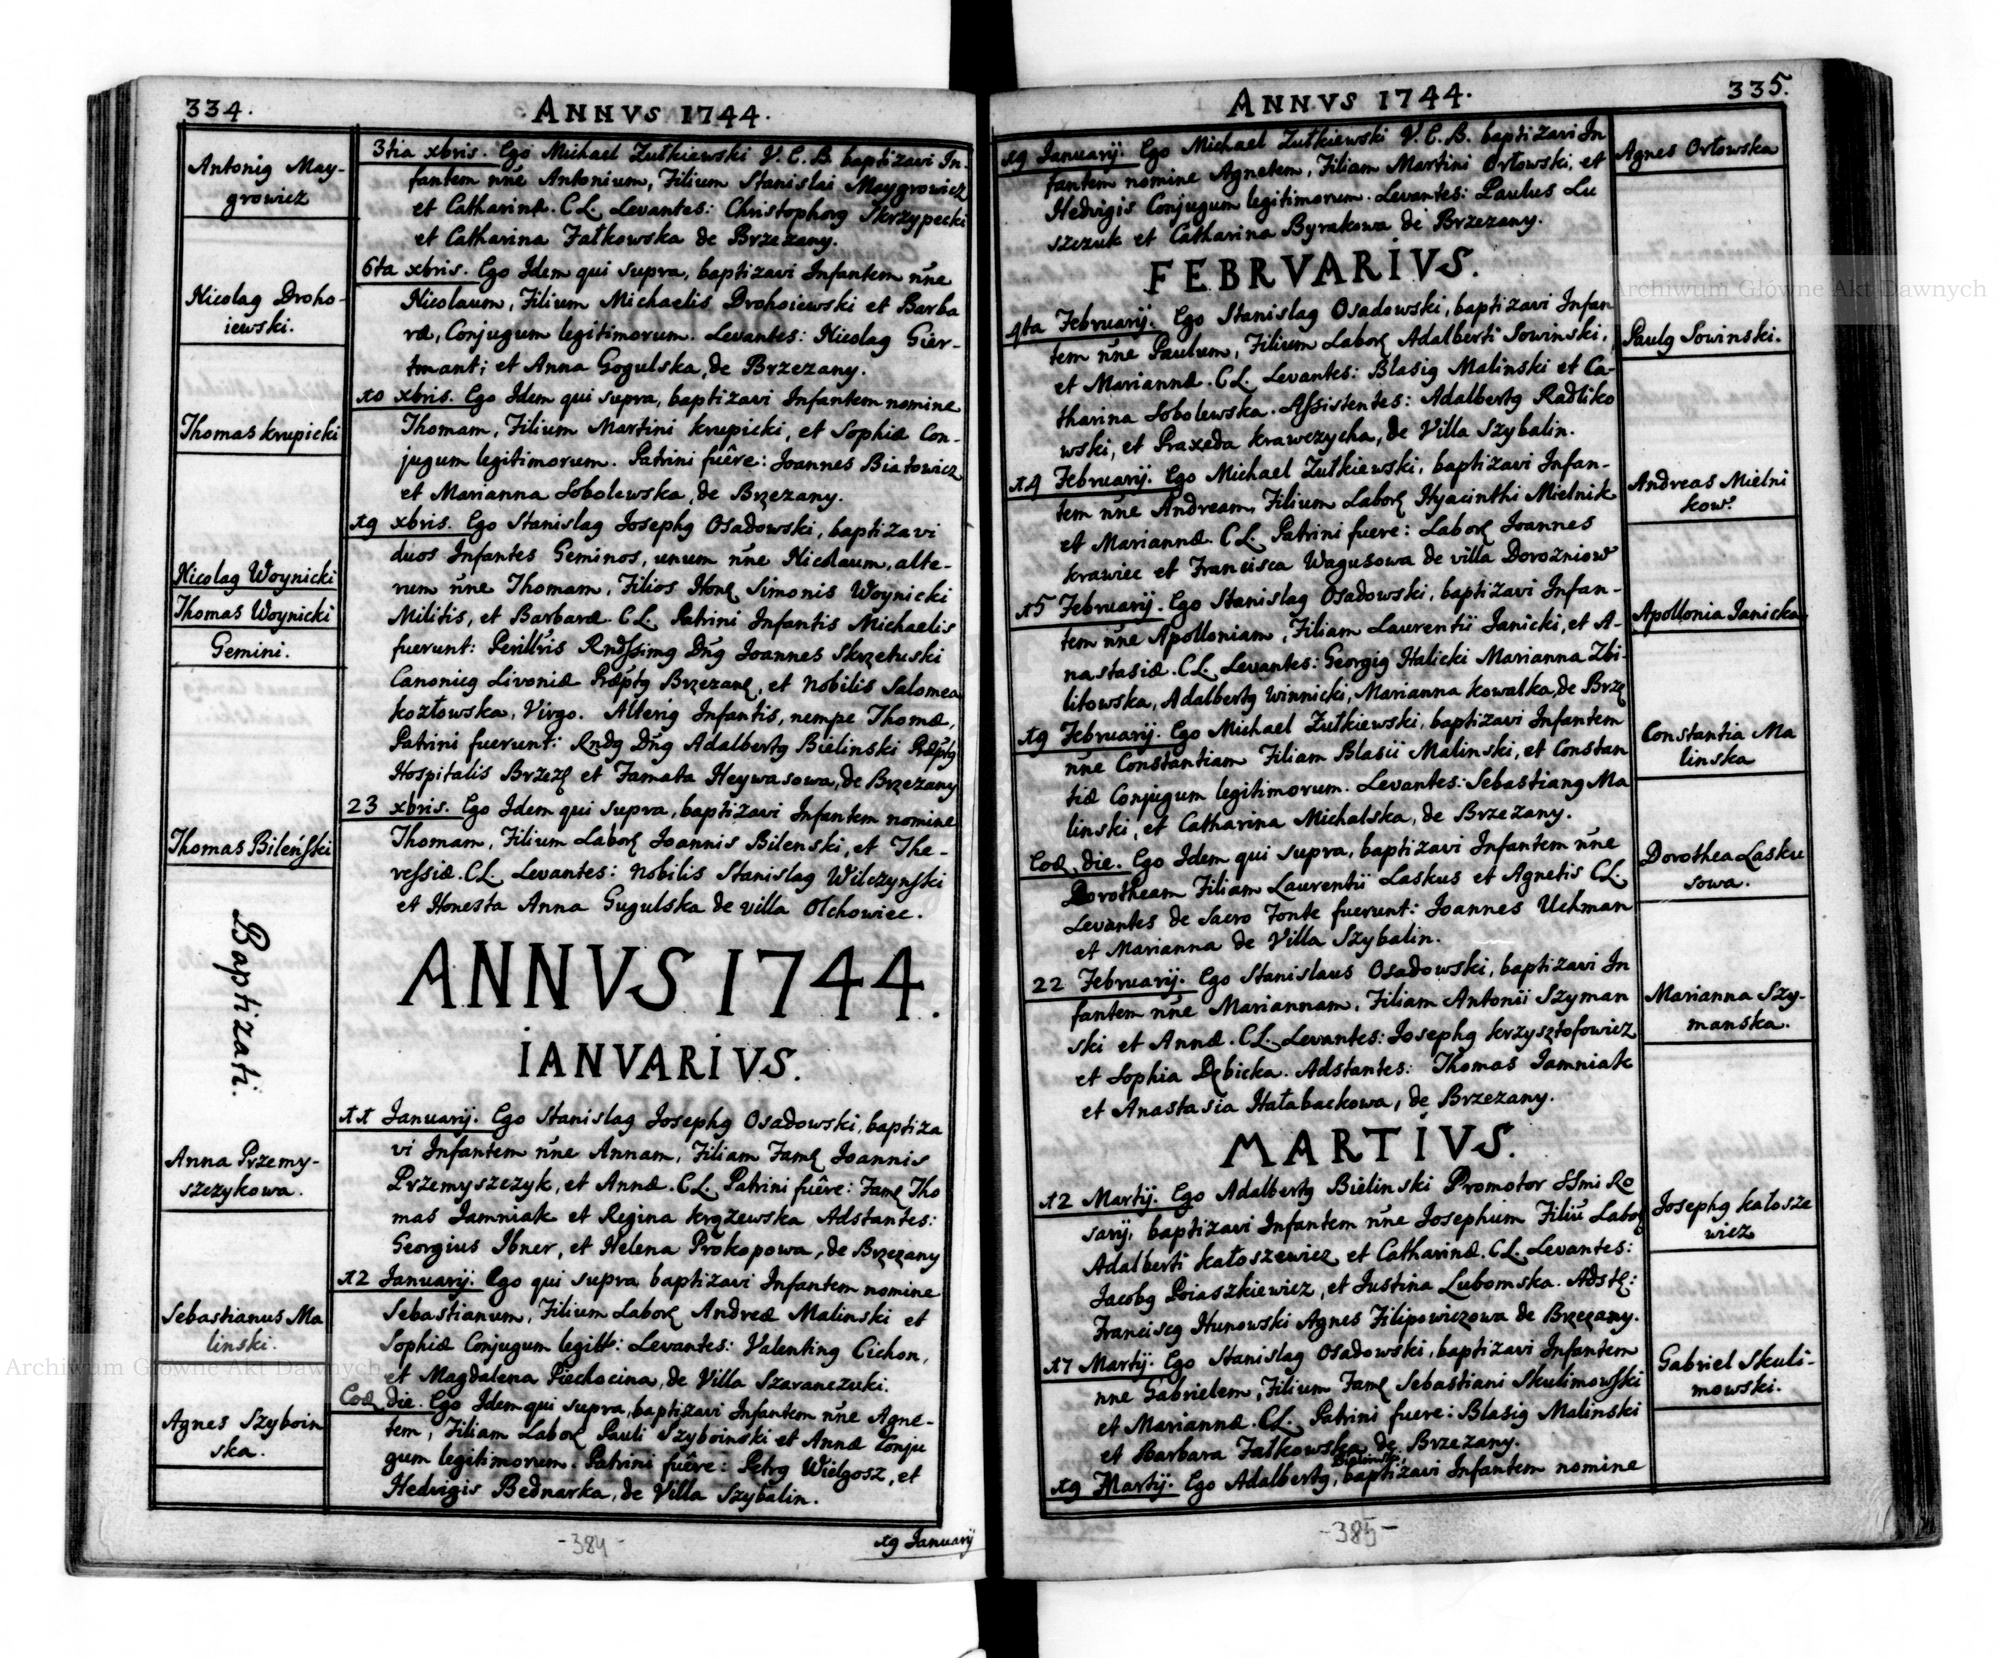 334.
ANNVS 1744.
Antonig May-
growicz
3tia xbris. Ego Michael Zułkiewski V. C. B. baptizavi In-
fantem nñe Antonium, Filium Stanislai Maygrowicz
et Catharinæ. C.L. Levantes: Christophorg Skrzypecki
et Catharina Fałkowska de Brzezany.
Nicolag Droho-
iewski.
6ta xbris. Ego Idem qui supra, baptizavi Infantem nñe
Nicolaum, Filium Michaelis Drohoiewski et Barba
ræ, Conjugum legitimorum. Levantes: Nicolag Gier-
tmant; et Anna Gogulska, de Brzezany.
Thomas Krupicki
10 xbris. Ego Idem qui supra, baptizavi Infantem nomine
Thomam, Filium Martini Krupicki, et Sophiæ Con-
jugum legitimorum. Patrini fuêre: Joannes Białowicz
et Marianna Sobolewska, de Brzezany.
19 xbris. Ego Stanislag Josephg Osadowski, baptizavi
duos Infantes Geminos, unum nñe Nicolaum, alte-
Nicolag Woynicki
rum nñe Thomam, Filios Honę Simonis Woynicki
Thomas Woynicki
Militis, et Barbaræ. C.L. Patrini Infantis Michaelis
Gemini.
fuerunt: Perillris Rndssimg Dñg Joannes Skrzetuski
Canonicg Livoniæ Præptg Brzezanę, et Nobilis Salomea
Kozłowska, Virgo. Alterig Infantis, nempe Thomæ,
Patrini fuerunt: Rndg Dñg Adalbertg Bielinski Præptg
Hospitalis Brzezę et Famata Heywasowa, de Brzezany
Thomas Bileński
23 xbris. Ego Idem qui supra, baptizavi Infantem nomine
Thomam, Filium Laborę Joannis Bilenski, et The-
ressiæ. C.L. Levantes: Nobilis Stanislag Wilczynski
et Honesta Anna Gugulska de villa Olchowiec.
Baptizati.
ANNVS 1744.
IANVARIVS.
Anna Przemy-
szczykowa.
11 Januarij. Ego Stanislag Josephg Osadowski, baptiza
vi Infantem nñe Annam, Filiam Famę Joannis
Przemyszczyk, et Annæ. C.L. Patrini fuêre: Famę Tho
mas Jamniak et Regina Krązewska Adstantes:
Georgius Ibner, et Helena Prokopowa, de Brzezany
Sebastianus Ma
linski.
12 Januarij. Ego qui supra baptizavi Infantem nomine
Sebastianum, Filium Laborę Andreæ Malinski et
Sophiæ Conjugum legitt: Levantes: Valenting Cichon,
et Magdalena Piechocina, de Villa Szaranczuki.
Agnes Szyboin
ska.
Eoæ die. Ego Idem qui supra, baptizavi Infantem nñe Agne-
tem, Filiam Laborę Pauli Szyboinski et Annæ Conju
gum legitimorum. Patrini fuêre: Petrg Wielgosz, et
Hedvigis Bednarka, de Villa Szybalin.
-384-
19 Januarij
ANNVS 1744.
335.
19 Januarij. Ego Michael Zułkiewski V. C. B. baptizavi In
fantem nomine Agnetem, Filiam Martini Orłowski, et
Hedvigis Conjugum legitimorum. Levantes: Paulus Lu
szczuk et Catharina Byrakowa de Brzezany.
Agnes Orłowska
FEBRVARIVS.
4ta Februarij. Ego Stanislag Osadowski, baptizavi Infan
tem nñe Paulum, Filium Laborę Adalberti Sowinski,
et Mariannæ. C.L. Levantes: Blasig Malinski et Ca-
tharina Sobolewska. Assistentes: Adalbertg Radliko
wski, et Praxeda Krawczycha, de Villa Szybalin.
Paulg Sowinski.
14 Februarij. Ego Michael Zułkiewski, baptizavi Infan-
tem nñe Andream, Filium Laborę Hyacinthi Mielnik
et Mariannæ. C.L. Patrini fuere: Laborę Joannes
Krawiec et Francisca Wagusowa de villa Dorozniow
Andreas Mielni
kow.
15 Februarij. Ego Stanislag Osadowski, baptizavi Infan-
tem nñe Apolloniam, Filiam Laurentii Janicki, et A-
nastasiæ. C.L. Levantes: Georgig Halicki Marianna Zbi-
litowska, Adalbertg Winnicki, Marianna Kowalka, de Brzę
Apollonia Janicka
19 Februarij. Ego Michael Zułkiewski, baptizavi Infantem
nñe Constantiam Filiam Blasii Malinski, et Constan
tiæ Conjugum legitimorum. Levantes: Sebastiang Ma
linski, et Catharina Michalska, de Brzezany.
Constantia Ma
linska
Eoæ die. Ego Idem qui supra, baptizavi Infantem nñe
Dorotheam Filiam Laurentii Laskus et Agnetis C.L.
Levantes de Sacro Fonte fuerunt: Joannes Uchman
et Marianna de Villa Szybalin.
Dorothea Lasku
sowa.
22 Februarij. Ego Stanislaus Osadowski, baptizavi In
fantem nñe Mariannam, Filiam Antonii Szyman
ski et Annæ. C.L. Levantes: Josephg Krzysztofowicz
et Sophia Dębicka. Adstantes: Thomas Jamniak
et Anastasia Hałabackowa, de Brzezany.
Marianna Szy-
manska.
MARTIVS.
12 Martij. Ego Adalbertg Bielinski Promotor SSmi Ro
sarij, baptizavi Infantem nñe Josephum Filiũ Laborę
Adalberti Kałoszewicz et Catharinæ. C.L. Levantes:
Jacobg Poiaszkiewicz, et Justina Lubomska. Adstę:
Franciscg Hunowski Agnes Filipowiczowa de Brzezany.
Josephg Kałosze
wicz
17 Martij. Ego Stanislag Osadowski, baptizavi Infantem
nñe Gabrielem, Filium Famę Sebastiani Skulimowski
et Mariannæ. C.L. Patrini fuere: Blasig Malinski
et Barbara Fałkowska de Brzezany.
Gabriel Skuli-
mowski.
19 Martij. Ego Adalbertg Bielinski, baptizavi Infantem nomine
-385-
Archiwum Główne Akt Dawnych
Archiwum Główne Akt Dawnych